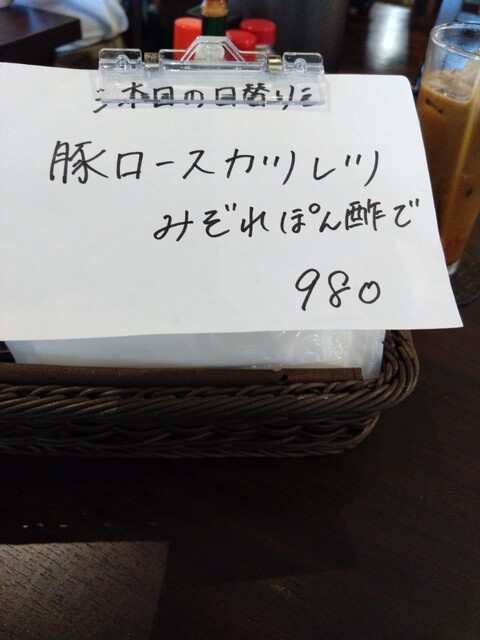 本日の日替り
豚ロースカツレツ
みぞれぽん酢で
980